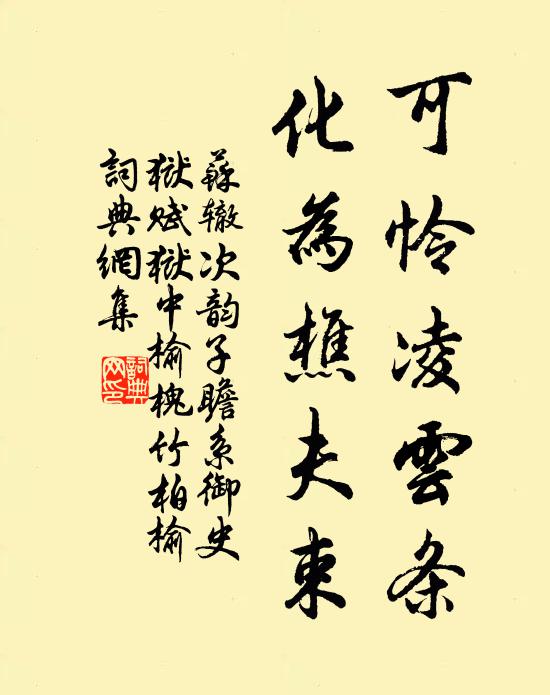 可怜凌雲条
化為樵夫束
蘇辙次韵子瞻系御史
狱赋狱中榆槐竹柏榆
詞典網集
詞典
网印